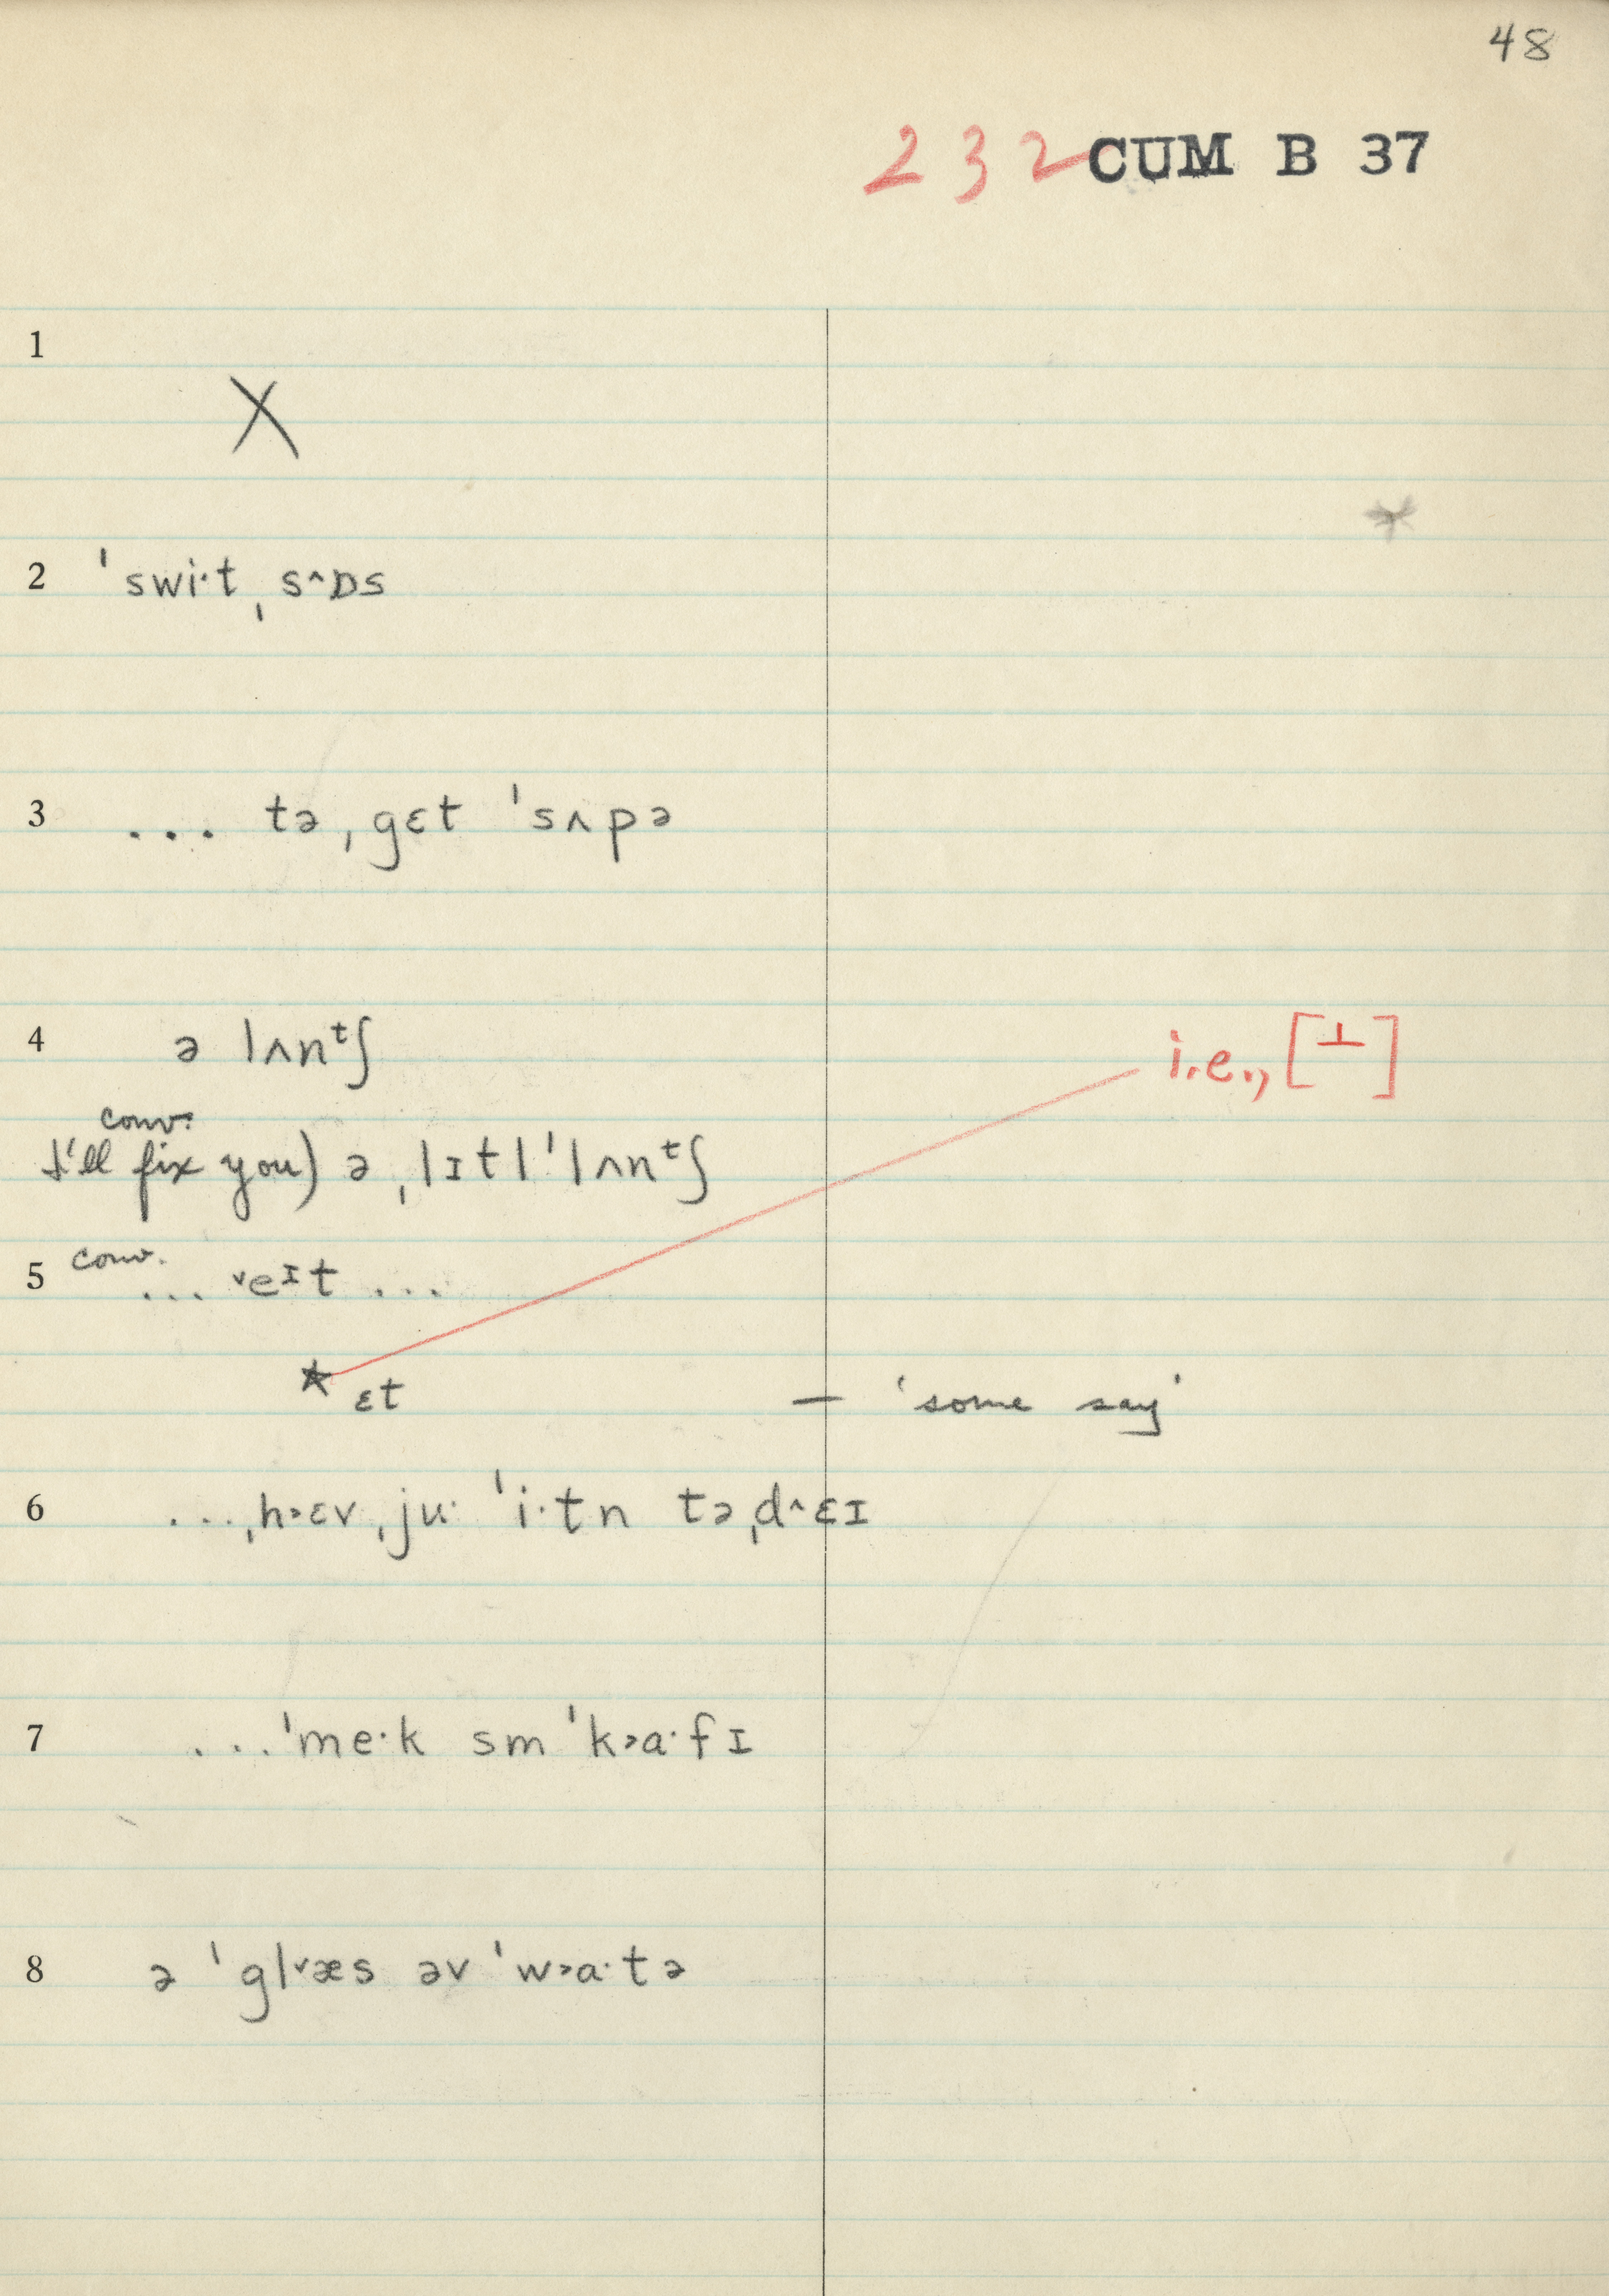 48
232 CUM B 37
1
X
2 ˈswi·t ˌs^ɒs
3 ... tə ˌgɛt ˈsʌpə
4 ə lʌnᵗʃ
i.e., [⊥]
conv.
I'll fix you) ə ˌlɪtl ˈlʌnᵗʃ
5 conv. ... ˅eᶦt ...
* ɛt — 'some say'
6 ... ˌh˃ɛv ˌju· ˈi·tn tə ˌd^ɛɪ
7 ... ˈme·k sm ˈk˃a·fɪ
8 ə ˈgl˅æs əv ˈw˃a·tə